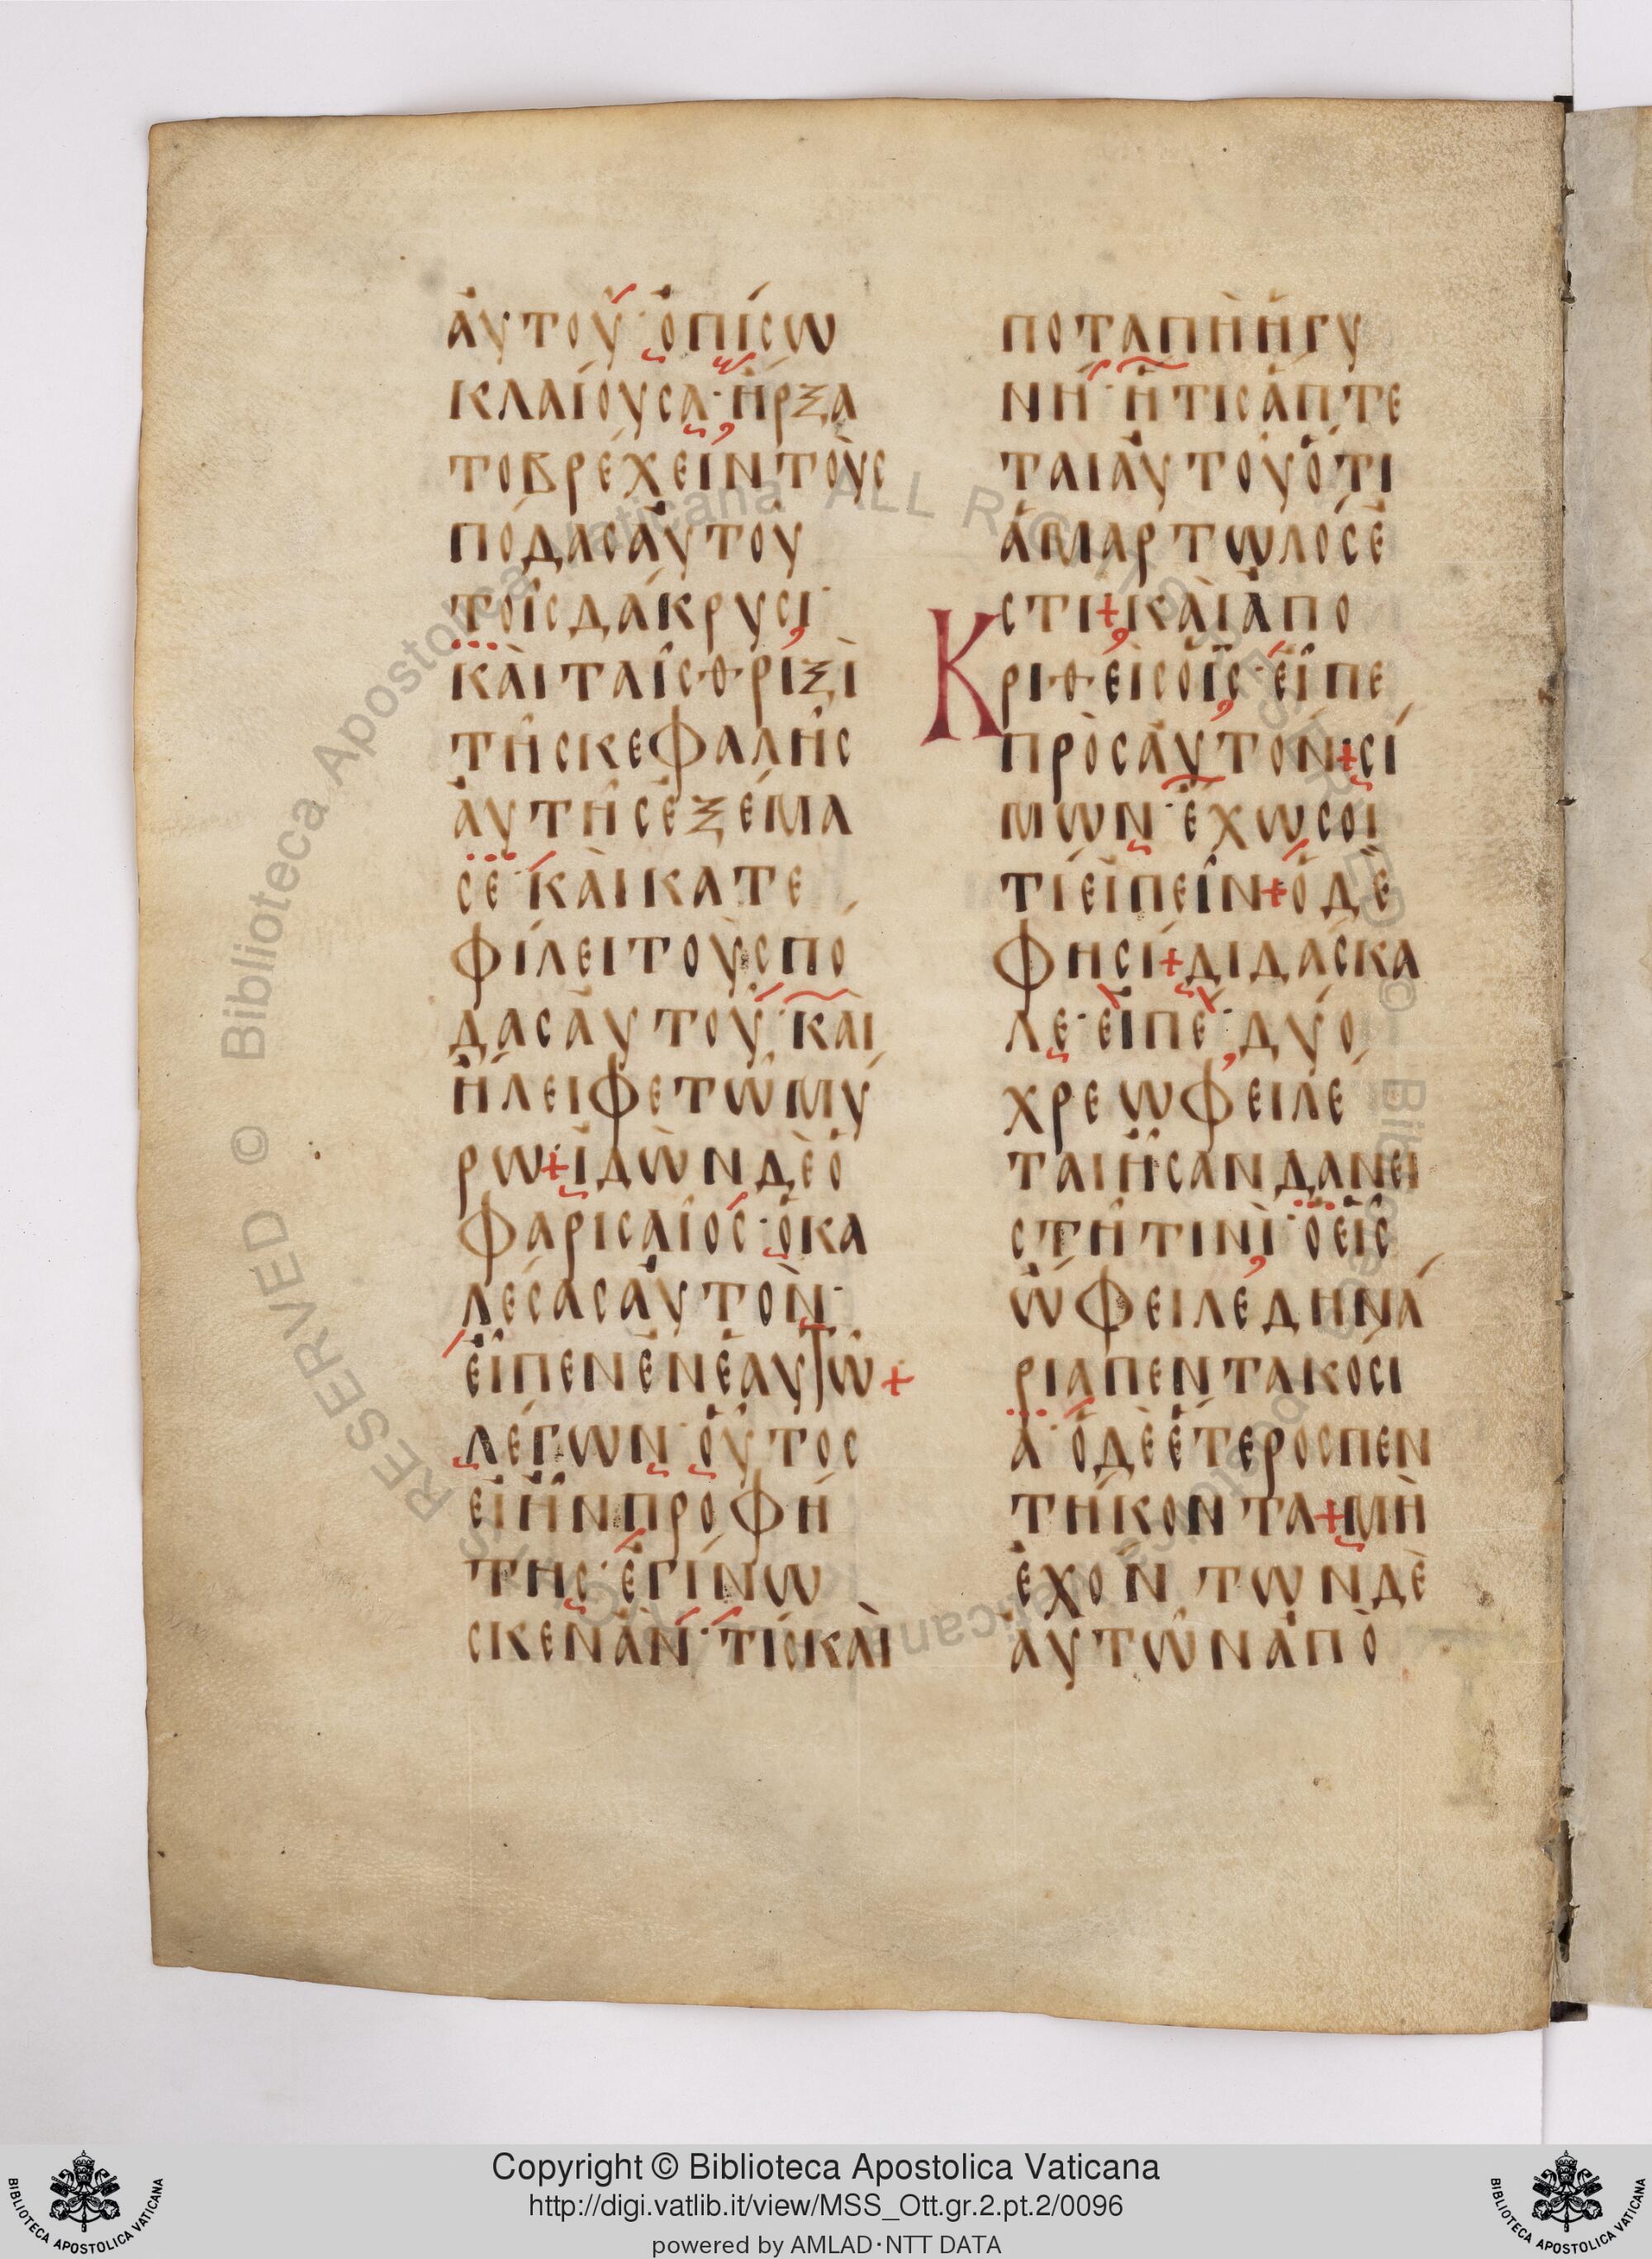 ἀυτοῦ· ὀπίσω
κλαίουσα· ἤρξα
το βρέχειν τοὺς
πόδας ἀυτοῦ
τοῖς δάκρυσι·
κὰι ταῖς θριξὶ
τῆς κεφαλῆς
ἀυτῆς ἐξέμα
σε· κὰι κατε
φίλει τοὺς πό
δας ἀυτοῦ· κὰι
ἤλειφε τῶ μύ
ρω + ἰδὼν δὲ ὁ
φαρισαῖος· ὁ κα
λέσας ἀυτὸν·
εἶπεν ἐν ἑαυτῶ +
λέγων· οὗτος
εἰ ἦν προφή
της· ἐγίνω
σκεν ἂν· τίς κὰι
ποταπὴ ἡ γυ
νὴ· ἥτις ἅπτε
ται ἀυτοῦ ὅτι
ἁμαρτωλός ἐ
στι + κὰι ἀπο
Κριθεὶς ὁ ις· εἶπε
πρὸς ἀυτόν + σί
μων· ἔχω σοί
τι εἰπεῖν + ὁ δέ
φησί + διδάσκα
λε· εἰπέ· δύο
χρεωφειλέ
ται ἦσαν δανει
στῆ τινὶ· ὁ εἷς
ὤφειλε δηνά
ρια πεντακόσι
α· ὁ δὲ ἕτερος πεν
τήκοντα + μὴ
ἐχόντων δὲ
ἀυτῶν ἀπὸ
Copyright © Biblioteca Apostolica Vaticana
http://digi.vatlib.it/view/MSS_Ott.gr.2.pt.2/0096
powered by AMLAD·NTT DATA
BIBLIOTECA APOSTOLICA VATICANA
BIBLIOTECA APOSTOLICA VATICANA